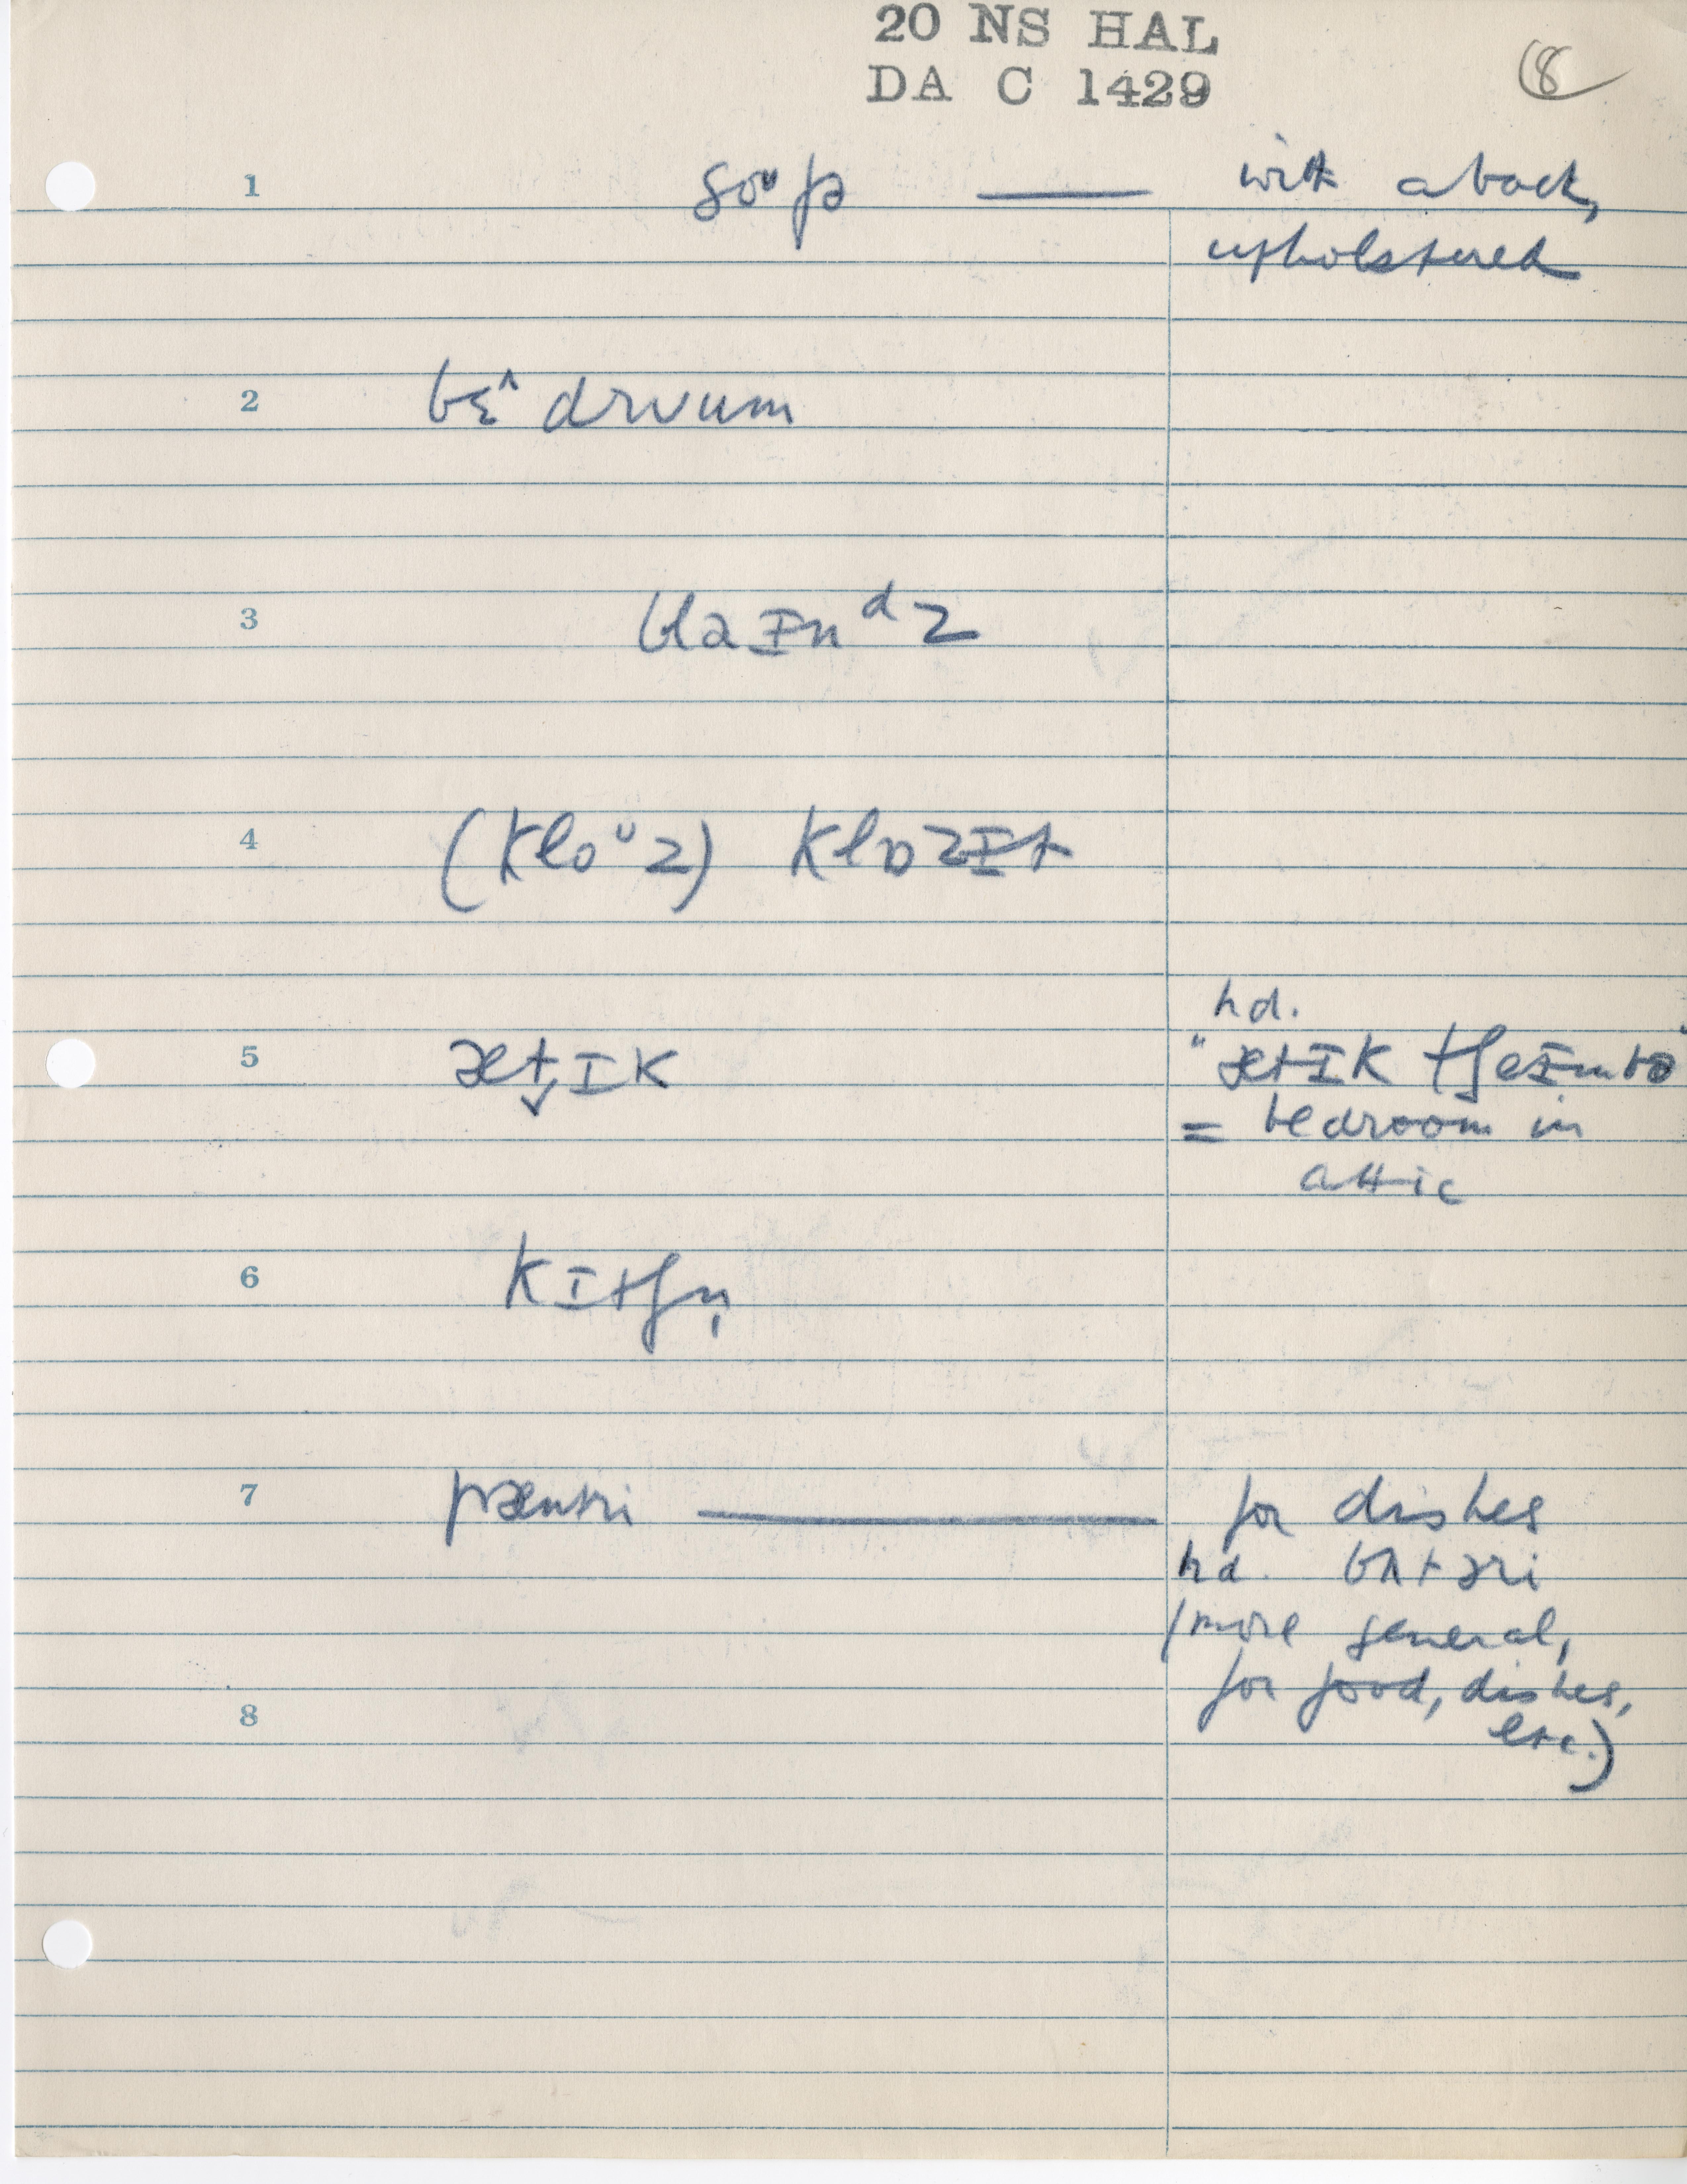 20 NS HAL
DA C 1429
8
1 soᵘfə — with a back,
upholstered
2 bɛ^ drʊum
3 blaɪnᵈz
4 (kloᵘz) klɒzɪt
hd.
5 ætɪk "ætɪk tʃeɪmbə"
= bedroom in
attic
6 kɪtʃn̩
7 pæntri — for dishes
hd. bʌtəri
(more general,
for food, dishes,
8 etc.)